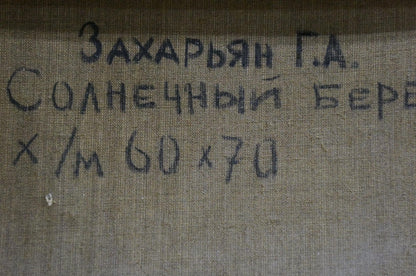 Захарьян Г.А.
Солнечный Бере
х/м 60х70